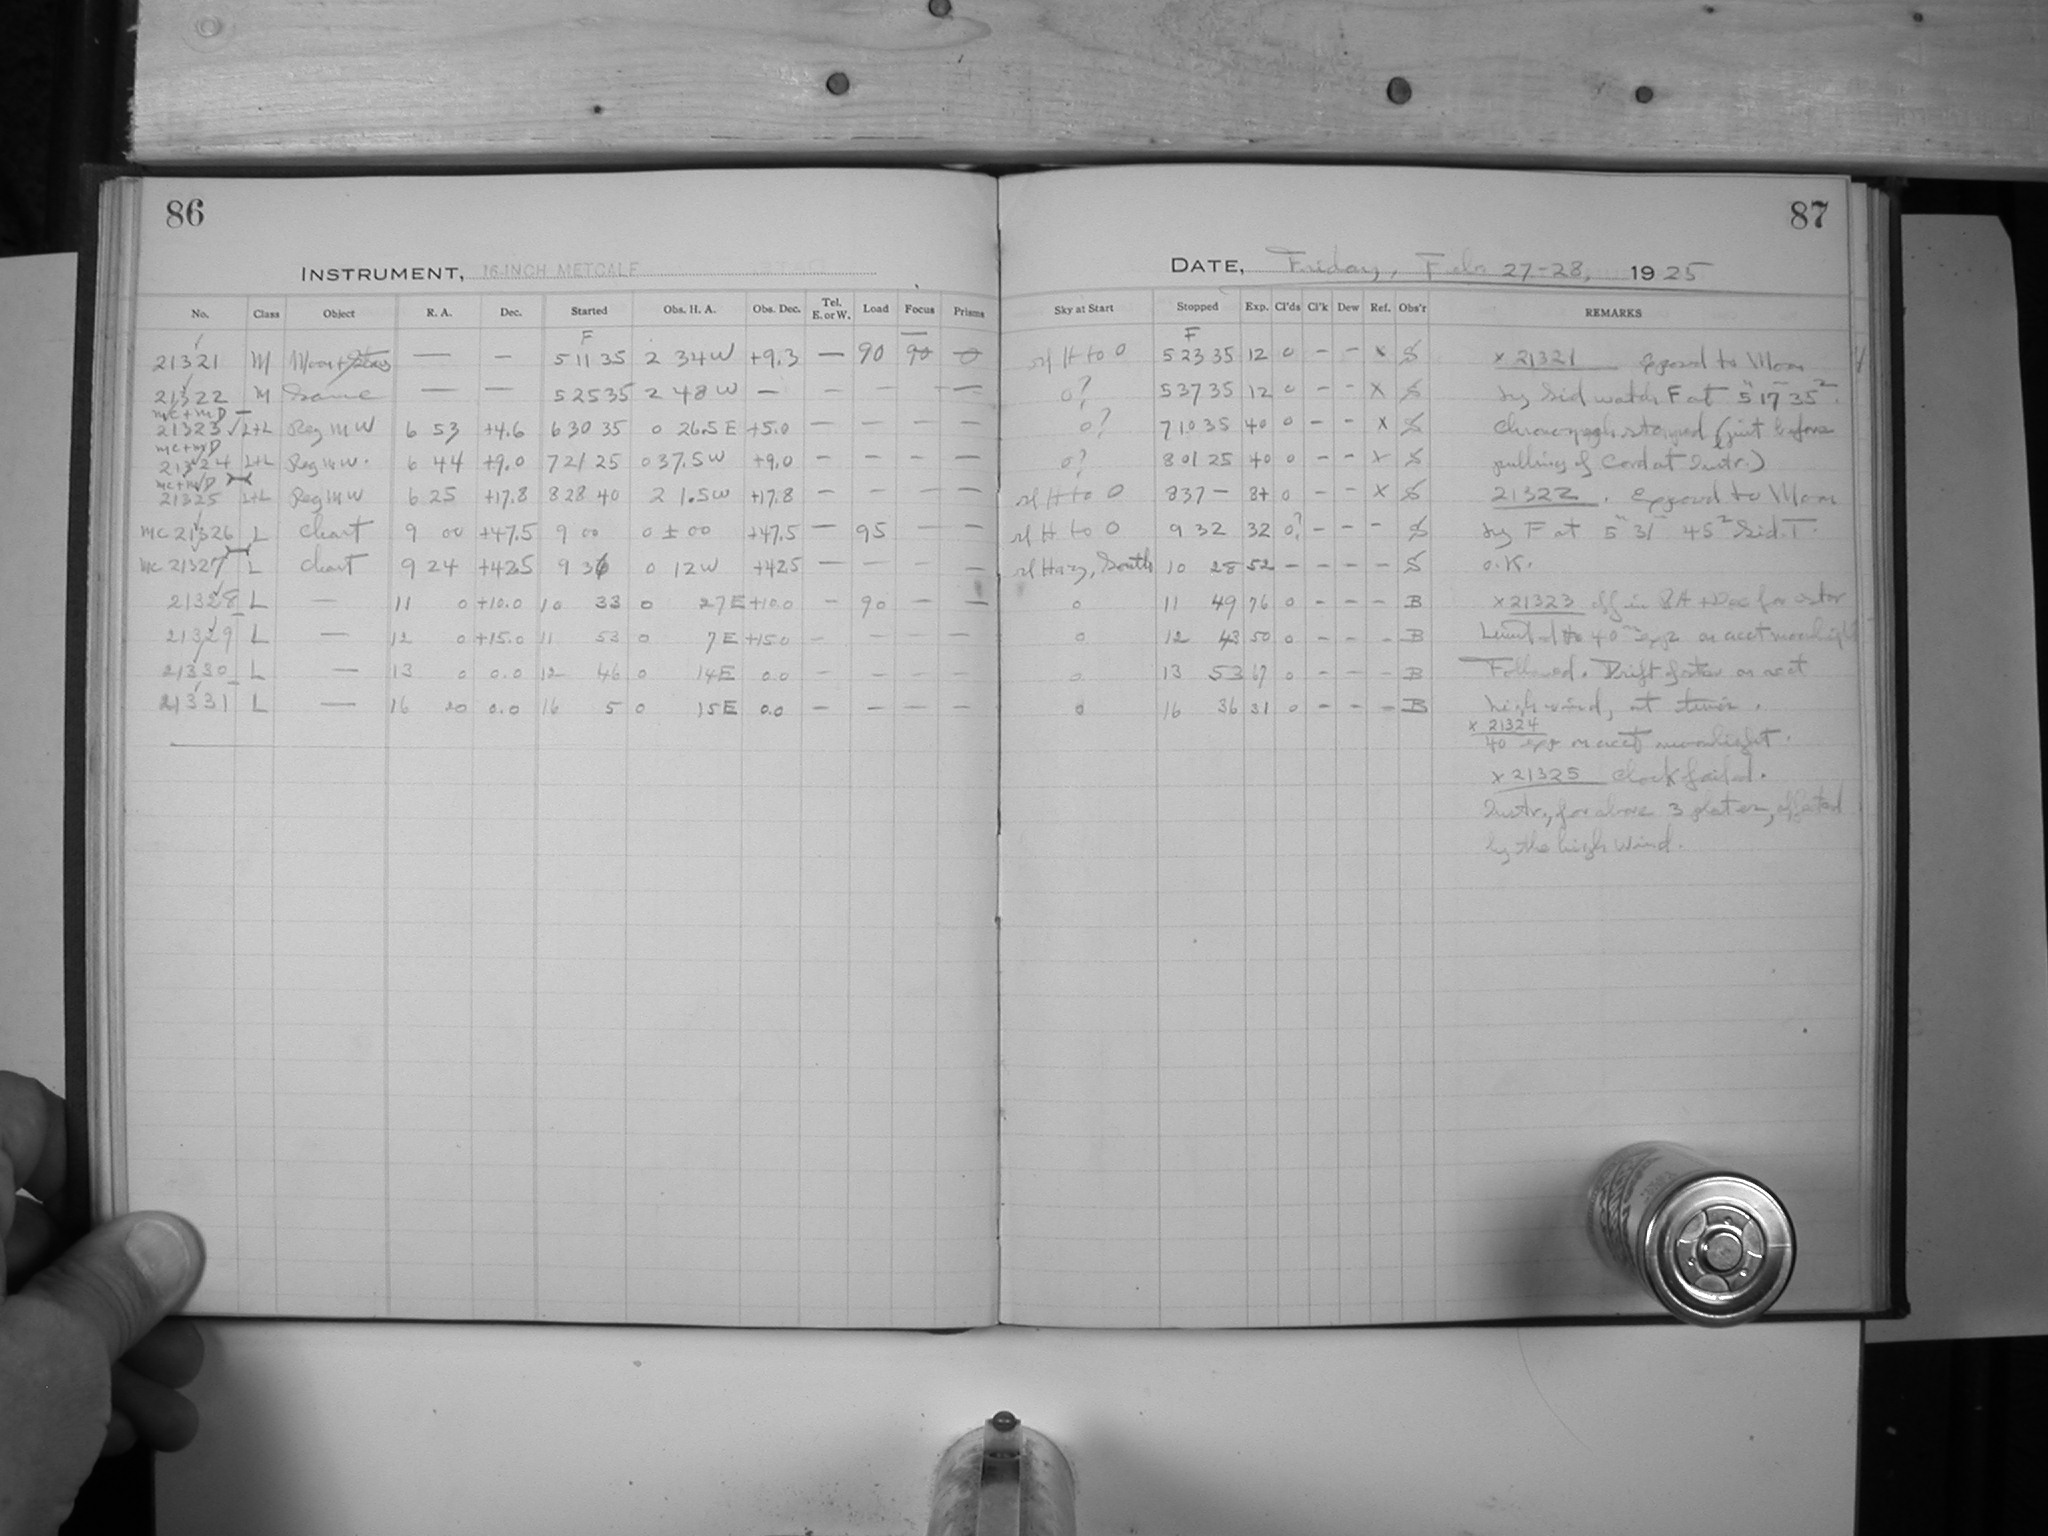 86
INSTRUMENT, 16-INCH METCALF
No. Class Object R. A. Dec. Started Obs. H. A. Obs. Dec. Tel. E. or W. Load Focus Prisms
F
21321 M Moon + Stars — — 5 11 35 2 34 W +9.3 — 90 90 0
21322 M Same — — 5 25 35 2 48 W — — — — —
mc + mD
21323 L+L Reg M W 6 53 +4.6 6 30 35 0 26.5 E +5.0 — — — —
mc + mD
21324 L+L Reg M W. 6 44 +9.0 7 21 25 0 37.5 W +9.0 — — — —
mc + mD
21325 L+L Reg M W 6 25 +17.8 8 28 40 2 1.5 W +17.8 — — — —
mc 21326 L Chart 9 00 +47.5 9 00 0 ± 00 +47.5 — 95 — —
mc 21327 L Chart 9 24 +42.5 9 36 0 12 W +42.5 — — — —
21328 L — 11 0 +10.0 10 33 0 27 E +10.0 — 90 — —
21329 L — 12 0 +15.0 11 53 0 7 E +15.0 — — — —
21330 L — 13 0 0.0 12 46 0 14 E 0.0 — — — —
21331 L — 16 20 0.0 16 5 0 15 E 0.0 — — — —
87
DATE, Friday, Feb 27-28, 1925
Sky at Start Stopped Exp. Cl'ds Cl'k Dew Ref. Obs'r REMARKS
F
sl H to 0 5 23 35 12 0 – – x S x 21321 exposed to Moon
0? 5 37 35 12 0 – – x S by Sid watch F at 5 17 35
0? 7 10 35 40 0 – – x S Chronograph stopped (just before
0? 8 01 25 40 0 – – x S pulling of Cord at Instr.)
sl H to 0 8 37 – 8+ 0 – – x S 21322. Exposed to Moon
sl H to 0 9 32 32 0? – – – S by F at 5 31 45 Sid. T.
sl Hazy, South 10 28 52 – – – – S O.K.
0 11 49 76 0 – – – B x 21323 off in RA + Dec for star
0 12 43 50 0 – – – B Limited to 40 exp on acct moonlight
0 13 53 67 0 – – – B Followed. Drift faster on acct
0 16 36 31 0 – – – B high wind, at times.
x 21324
40 exp on acct moonlight.
x 21325 Clock failed.
Instr., for above 3 plates, affected
by the high wind.